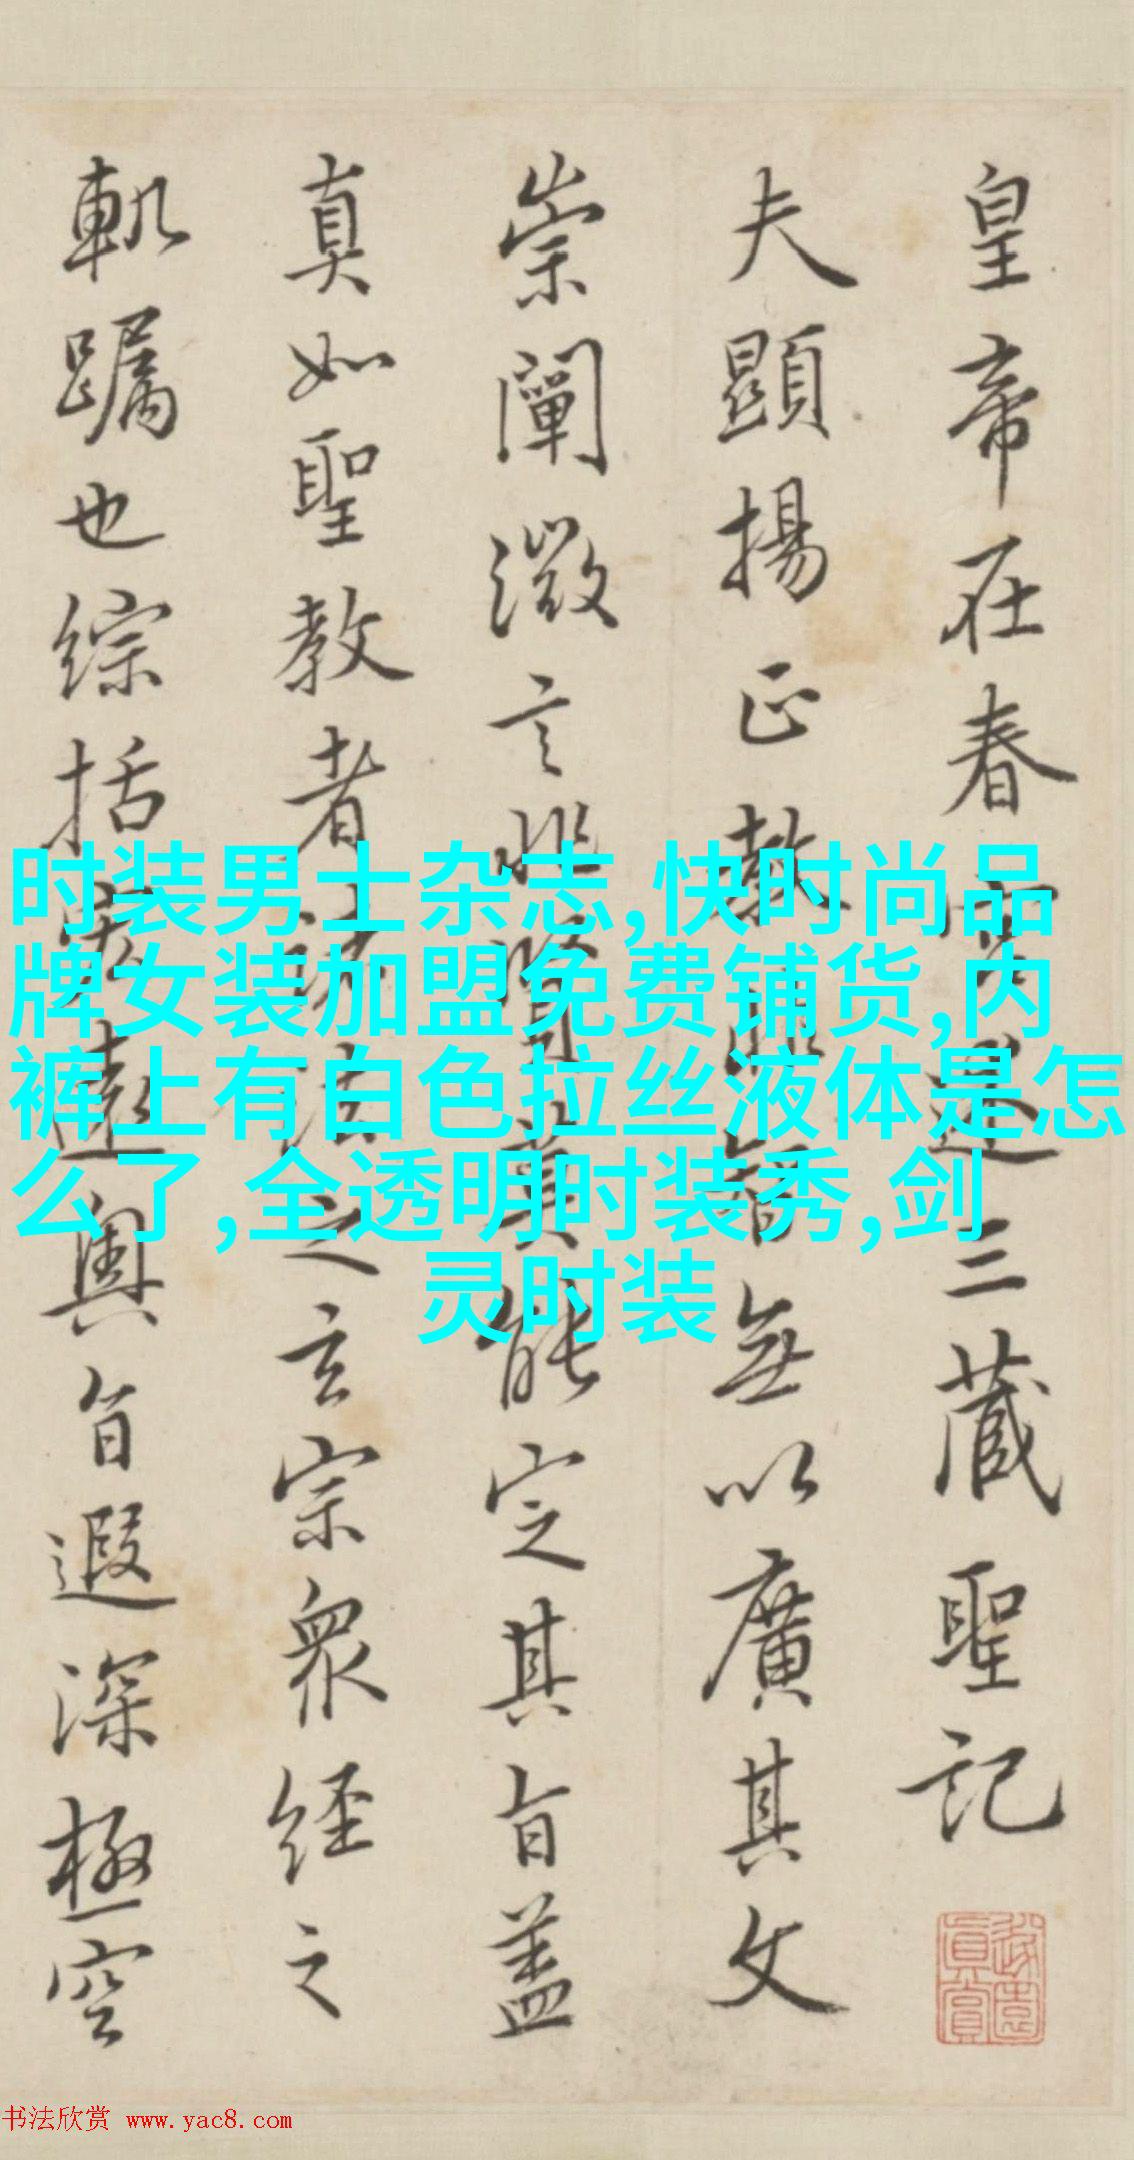 皇帝在春宮述三藏聖記
夫顯揚正教非智無以廣其文
崇闡微言非賢莫能定其旨蓋
真如聖教者諸法之玄宗眾經之
軌躅也綜括宏遠奧旨遐深極空
时装男士杂志,快时尚品
牌女装加盟免费铺货,内
裤上有白色拉丝液体是怎
么了,全透明时装秀,剑
灵时装
书法欣赏 www.yac8.com